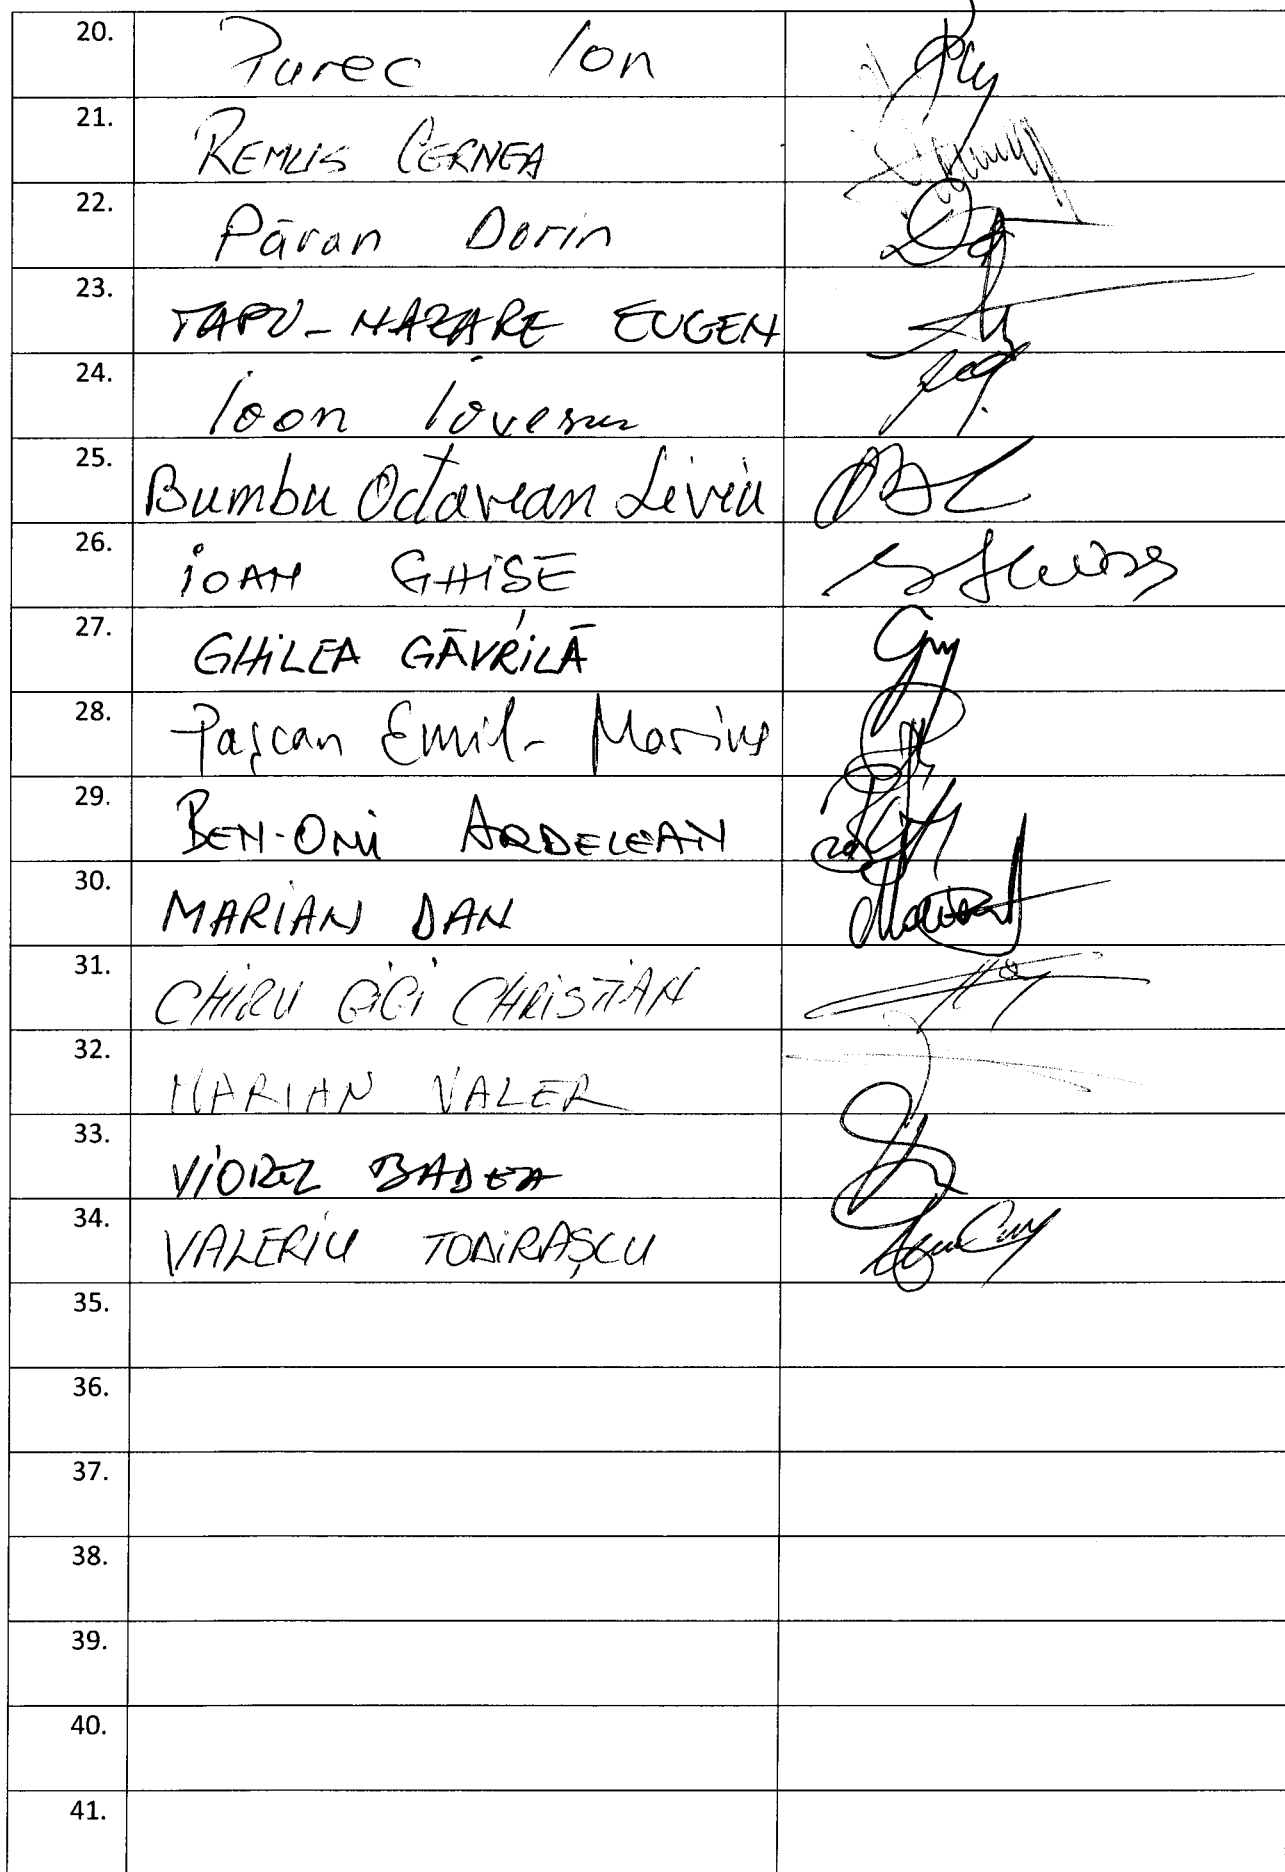 20. Purec Ion
21. REMUS CERNEA
22. Păran Dorin
23. TAPU-NAZARE EUGEN
24. Ioan Iovescu
25. Bumbu Octavian Liviu
26. IOAN GHISE
27. GHILEA GĂVRILĂ
28. Paşcan Emil-Marius
29. BEN-ONI ARDELEAN
30. MARIAN DAN
31. CHIRU GIGI CHRISTIAN
32. MARIAN VALER
33. VIOREL BADEA
34. VALERIU TODIRAŞCU
35.
36.
37.
38.
39.
40.
41.